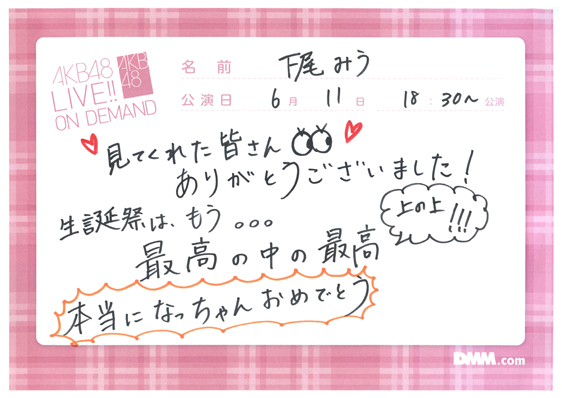 AKB48
LIVE!!
ON DEMAND
AKB
48
名前 下尾みう
公演日 6月 11日 18:30～公演
見てくれた皆さん
ありがとうございました!
生誕祭は、もう。。。
上の上!!!
最高の中の最高
本当になっちゃんおめでとう
DMM.com